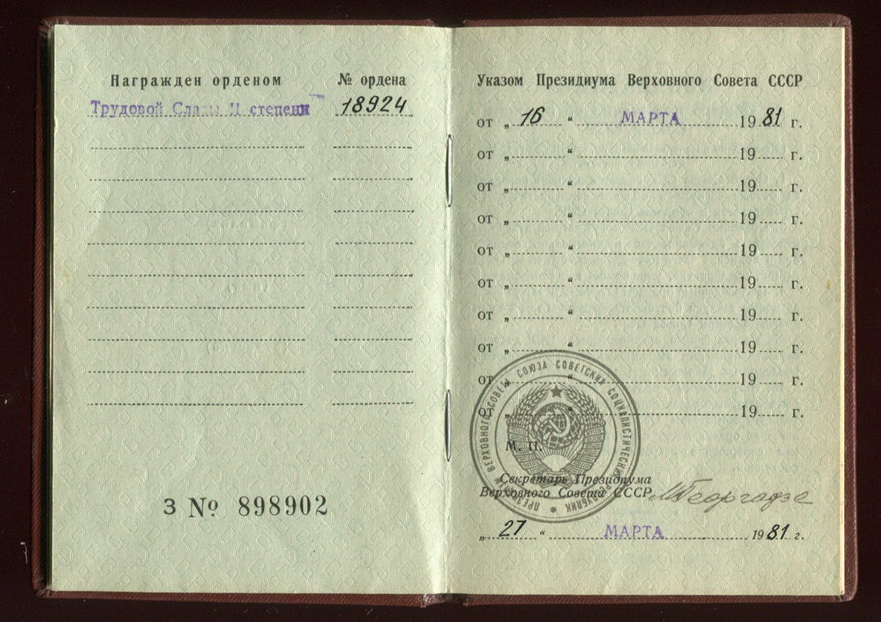 Награжден орденом
№ ордена
Трудовой Славы II степени
18924
З № 898902
Указом Президиума Верховного Совета СССР
от „ 16 “ МАРТА 1981 г.
от „ “ 19 г.
от „ “ 19 г.
от „ “ 19 г.
от „ “ 19 г.
от „ “ 19 г.
от „ “ 19 г.
от „ “ 19 г.
от „ “ 19 г.
от „ “ 19 г.
ПРЕЗИДИУМ ВЕРХОВНОГО СОВЕТА СОЮЗА СОВЕТСКИХ СОЦИАЛИСТИЧЕСКИХ РЕСПУБЛИК
М. П.
Секретарь Президиума
Верховного Совета СССР М Георгадзе
„ 27 “ МАРТА 1981 г.